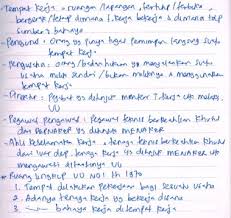 Tempat Kerja : ruangan / lapangan, tertutup / terbuka,
bergerak / tetap dimana t. kerja bekerja & dimana tdp
sumber² bahaya
Pengurus : Orang yg punya tugas pemimpin langsung suatu
tempat kerja
Pengusaha : orang / badan hukum yg menjalankan suatu
usaha milik sendiri / bukan miliknya & menggunakan
tempat kerja
Direktur : Pejabat yg ditunjuk menaker
UU
Pegawai pengawas : Pegawai teknis berkeahlian khusus
dari DEPNAKER yg ditunjuk MENAKER
Ahli keselamatan kerja : tenaga teknis berkeahlian khusus
dari luar dep. tenaga kerja yg ditunjuk MENAKER utk
mengawasi ditaatinya UU
Ruang lingkup UU NO 1 th 1970
1. Tempat dilakukan pekerjaan bagi suatu usaha
2. Adanya tenaga kerja yg bekerja disana
3. bahaya kerja di tempat kerja